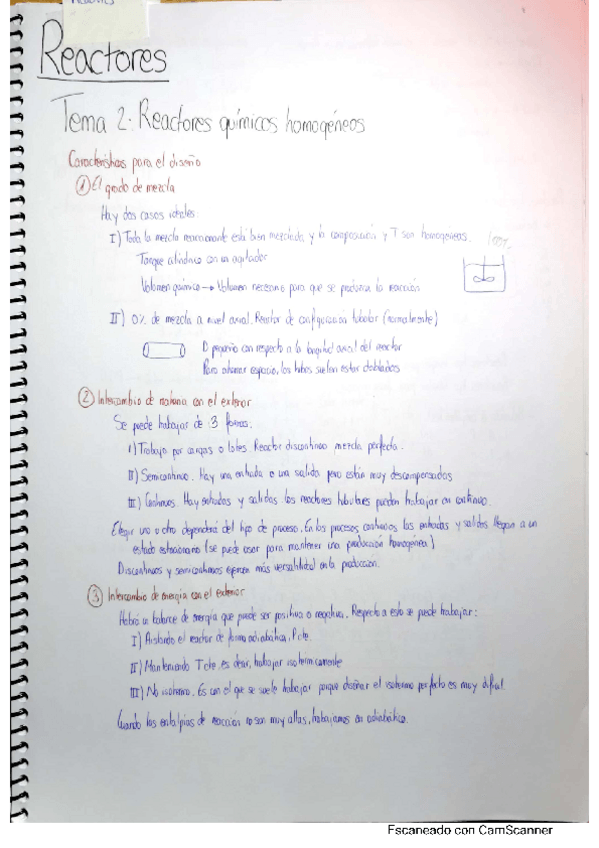 Reactores
Tema 2: Reactores químicos homogéneos
Características para el diseño
① El grado de mezcla
Hay dos casos ideales:
I) Toda la mezcla reaccionante está bien mezclada y la composición y T son homogéneas. 100%
Tanque cilíndrico con un agitador
Volumen químico → Volumen necesario para que se produzca la reacción
II) 0% de mezcla a nivel axial. Reactor de configuración tubular (normalmente)
D pequeño con respecto a la longitud axial del reactor
Para ahorrar espacio, los tubos suelen estar doblados
② Intercambio de materia con el exterior
Se puede trabajar de 3 formas.
I) Trabajo por cargas o lotes. Reactor discontinuo mezcla perfecta.
II) Semicontinuo. Hay una entrada o una salida pero están muy descompensadas
III) Continuos. Hay entradas y salidas los reactores tubulares pueden trabajar en continuo.
Elegir uno u otro dependerá del tipo de proceso. En los procesos continuos las entradas y salidas llegan a un
estado estacionario (se puede usar para mantener una producción homogénea)
Discontinuos y semicontinuos ejercen más versatilidad en la producción.
③ Intercambio de energía con el exterior
Habrá un balance de energía que puede ser positiva o negativa. Respecto a esto se puede trabajar:
I) Aislando el reactor de forma adiabática.
II) Manteniendo T cte, es decir, trabajar isotérmicamente
III) No isotermo. Es con el que se suele trabajar porque diseñar el isotermo perfecto es muy difícil.
Cuando las entalpías de reacción no son muy altas, trabajamos en adiabático.
Escaneado con CamScanner